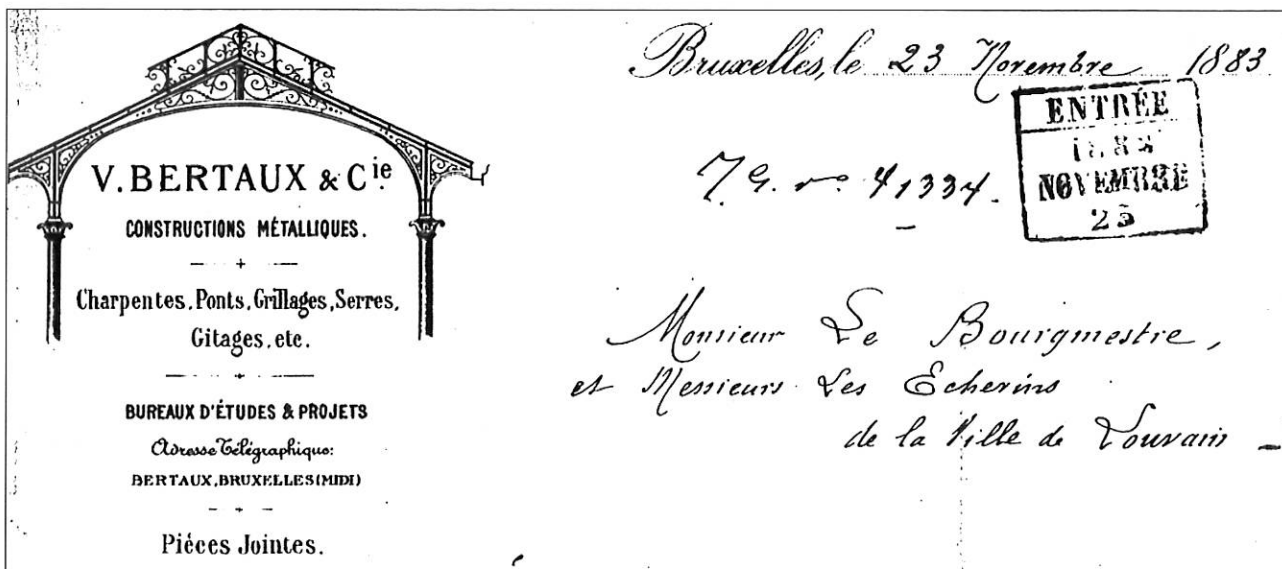 V. BERTAUX & Cie.
CONSTRUCTIONS MÉTALLIQUES.
Charpentes, Ponts, Grillages, Serres,
Gitages, etc.
BUREAUX D'ÉTUDES & PROJETS
Adresse Télégraphique:
BERTAUX, BRUXELLES (MIDI)
Pièces Jointes.
Bruxelles, le 23 Novembre 1883
ENTRÉE
NOVEMBRE
no 41334.
Monsieur Le Bourgmestre,
et Messieurs Les Echevins
de la Ville de Louvain